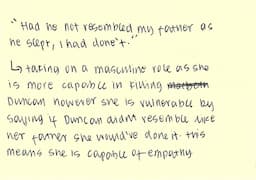 "Had he not resembled my father as
he slept, I had done't."
↳ taking on a masculine role as she
is more capable in killing macbeth
Duncan however she is vulnerable by
saying if Duncan didnt resemble like
her father she would've done it. this
means she is capable of empathy